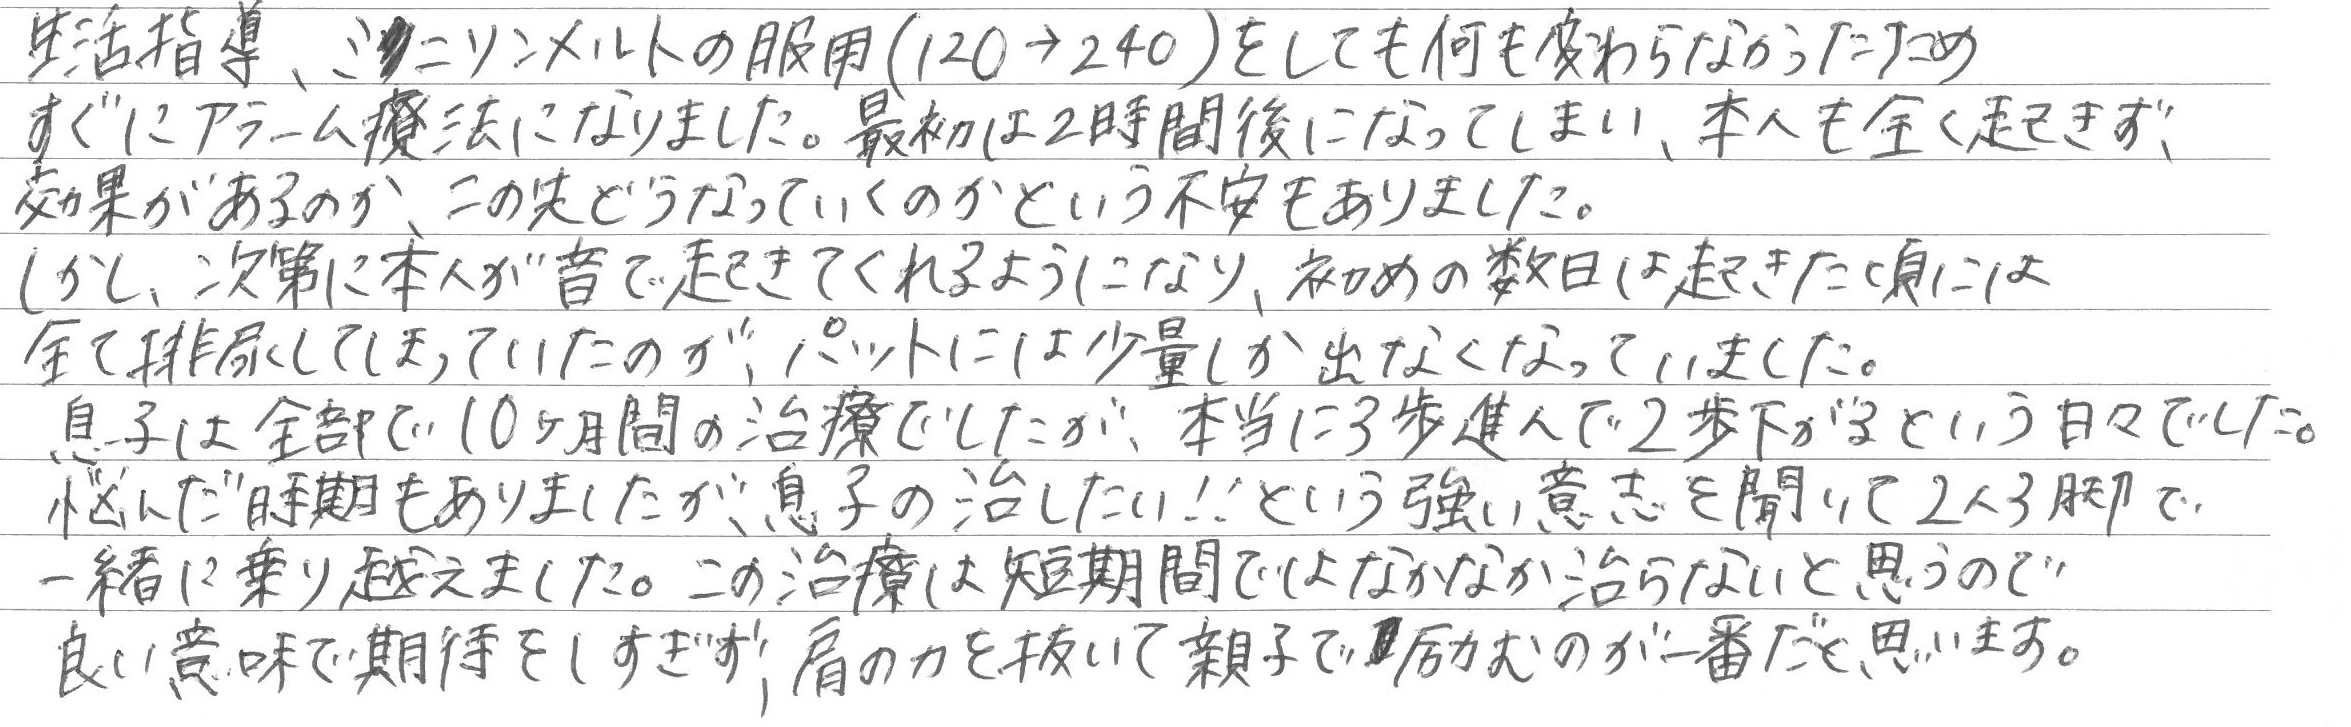 生活指導、ミニリンメルトの服用(120→240)をしても何も変わらなかったため
すぐにアラーム療法になりました。最初は2時間後になってしまい、本人も全く起きず、
効果があるのか、この先どうなっていくのかという不安もありました。
しかし、次第に本人が音で起きてくれるようになり、初めの数日は起きた頃には
全て排尿してしまっていたのが、パットには少量しか出なくなっていました。
息子は全部で10ヶ月間の治療でしたが、本当に3歩進んで2歩下がるという日々でした。
悩んだ時期もありましたが、息子の治したい!!という強い意志を聞いて2人3脚で
一緒に乗り越えました。この治療は短期間ではなかなか治らないと思うので
良い意味で期待をしすぎず、肩の力を抜いて親子で励むのが一番だと思います。